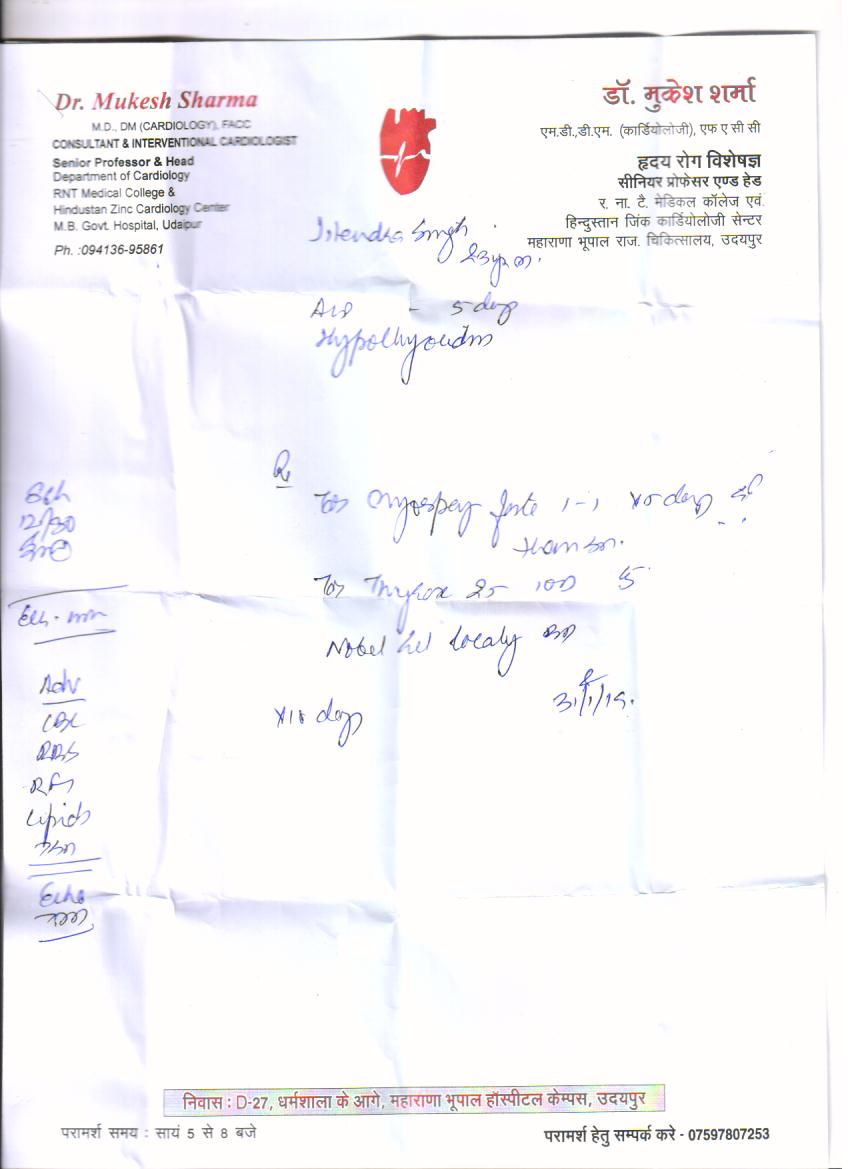 Dr. Mukesh Sharma
M.D., DM (CARDIOLOGY), FACC
CONSULTANT & INTERVENTIONAL CARDIOLOGIST
Senior Professor & Head
Department of Cardiology
RNT Medical College &
Hindustan Zinc Cardiology Center
M.B. Govt. Hospital, Udaipur
Ph. :094136-95861
डॉ. मुकेश शर्मा
एम.डी.,डी.एम. (कार्डियोलोजी), एफ ए सी सी
हृदय रोग विशेषज्ञ
सीनियर प्रोफेसर एण्ड हेड
र. ना. टै. मेडिकल कॉलेज एवं
हिन्दुस्तान जिंक कार्डियोलोजी सेन्टर
महाराणा भूपाल राज. चिकित्सालय, उदयपुर
Jitendra Singh
5 day
Hypothyroidism
Rx
forte 1-1 x 5 day
25
Nobel gel localy
x 10 day
31/1/19.
Adv
CBC
RBS
RFT
Lipids
Echo
निवास : D-27, धर्मशाला के आगे, महाराणा भूपाल हॉस्पीटल केम्पस, उदयपुर
परामर्श समय : सायं 5 से 8 बजे
परामर्श हेतु सम्पर्क करे - 07597807253